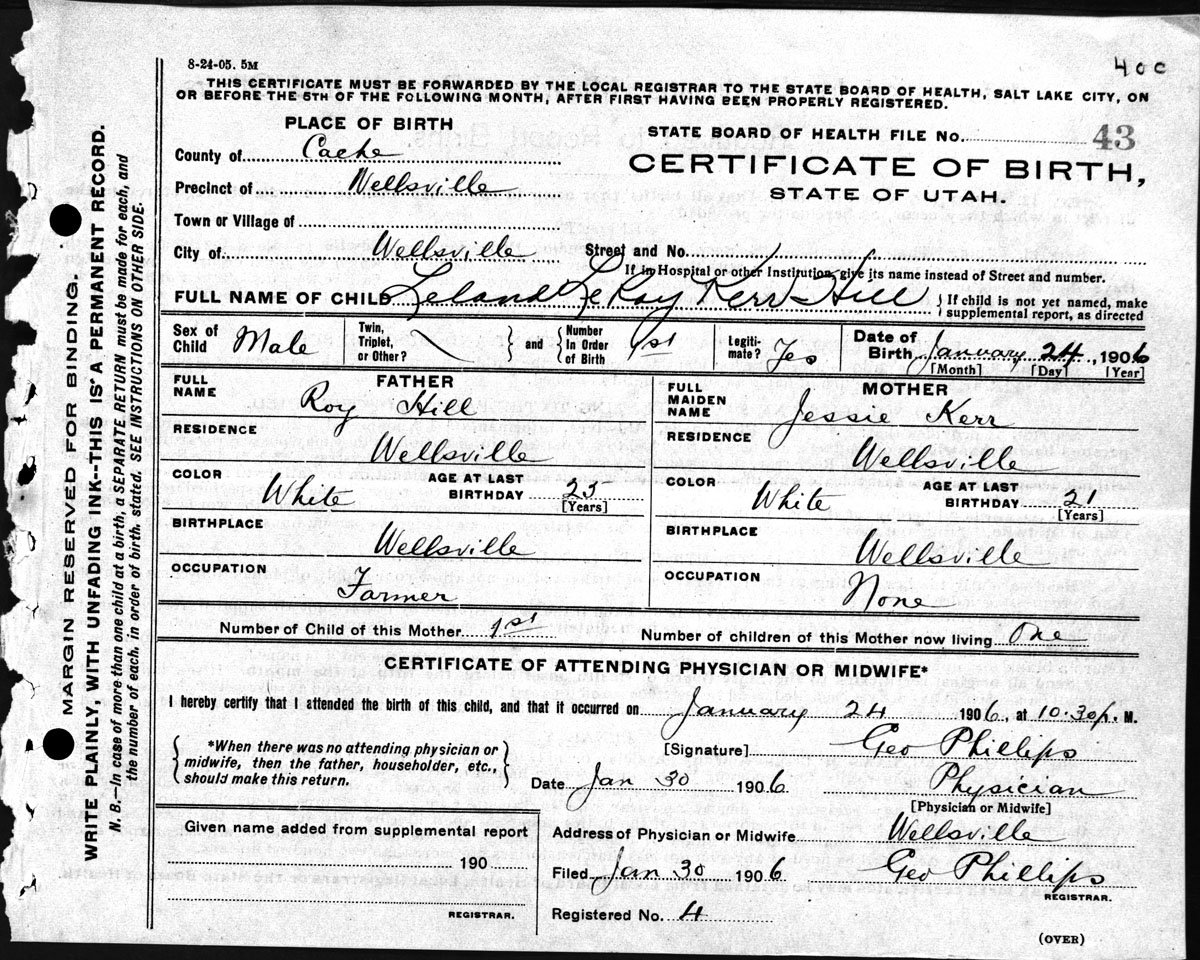 8-24-05. 5M
40c
THIS CERTIFICATE MUST BE FORWARDED BY THE LOCAL REGISTRAR TO THE STATE BOARD OF HEALTH, SALT LAKE CITY, ON
OR BEFORE THE 5TH OF THE FOLLOWING MONTH, AFTER FIRST HAVING BEEN PROPERLY REGISTERED.
PLACE OF BIRTH
STATE BOARD OF HEALTH FILE No. 43
County of Cache
CERTIFICATE OF BIRTH,
Precinct of Wellsville
STATE OF UTAH.
Town or Village of
City of Wellsville Street and No.
If in Hospital or other Institution, give its name instead of Street and number.
FULL NAME OF CHILD Leland LeRoy Kerr Hill } If child is not yet named, make
supplemental report, as directed
Sex of Child Male Twin, Triplet, or Other? } and { Number In Order of Birth 1st Legiti-mate? Yes Date of Birth January 24, 1906
[Month] [Day] [Year]
FATHER
FULL NAME Roy Hill
RESIDENCE
Wellsville
COLOR White AGE AT LAST BIRTHDAY 23
[Years]
BIRTHPLACE
Wellsville
OCCUPATION
Farmer
MOTHER
FULL MAIDEN NAME Jessie Kerr
RESIDENCE
Wellsville
COLOR White AGE AT LAST BIRTHDAY 21
[Years]
BIRTHPLACE
Wellsville
OCCUPATION
None
Number of Child of this Mother 1st Number of children of this Mother now living One
CERTIFICATE OF ATTENDING PHYSICIAN OR MIDWIFE*
I hereby certify that I attended the birth of this child, and that it occurred on January 24 1906, at 10.30 p. M.
{ *When there was no attending physician or
midwife, then the father, householder, etc.,
should make this return. }
[Signature] Geo Phillips
Date Jan 30 1906. Physician
[Physician or Midwife]
Given name added from supplemental report
190
REGISTRAR.
Address of Physician or Midwife Wellsville
Filed Jan 30 1906 Geo Phillips
REGISTRAR.
Registered No. 4
(OVER)
MARGIN RESERVED FOR BINDING.
WRITE PLAINLY, WITH UNFADING INK--THIS IS A PERMANENT RECORD.
N. B.—In case of more than one child at a birth, a SEPARATE RETURN must be made for each, and
the number of each, in order of birth, stated. SEE INSTRUCTIONS ON OTHER SIDE.